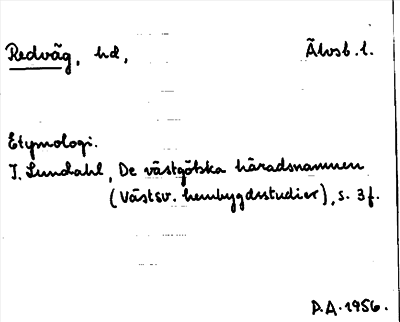 Redväg, hd, Älvsb. l.
Etymologi.
I. Lundahl, De västgötska häradsnamnen
(Västsv. hembygdsstudier), s. 3f.
P.A. 1956.